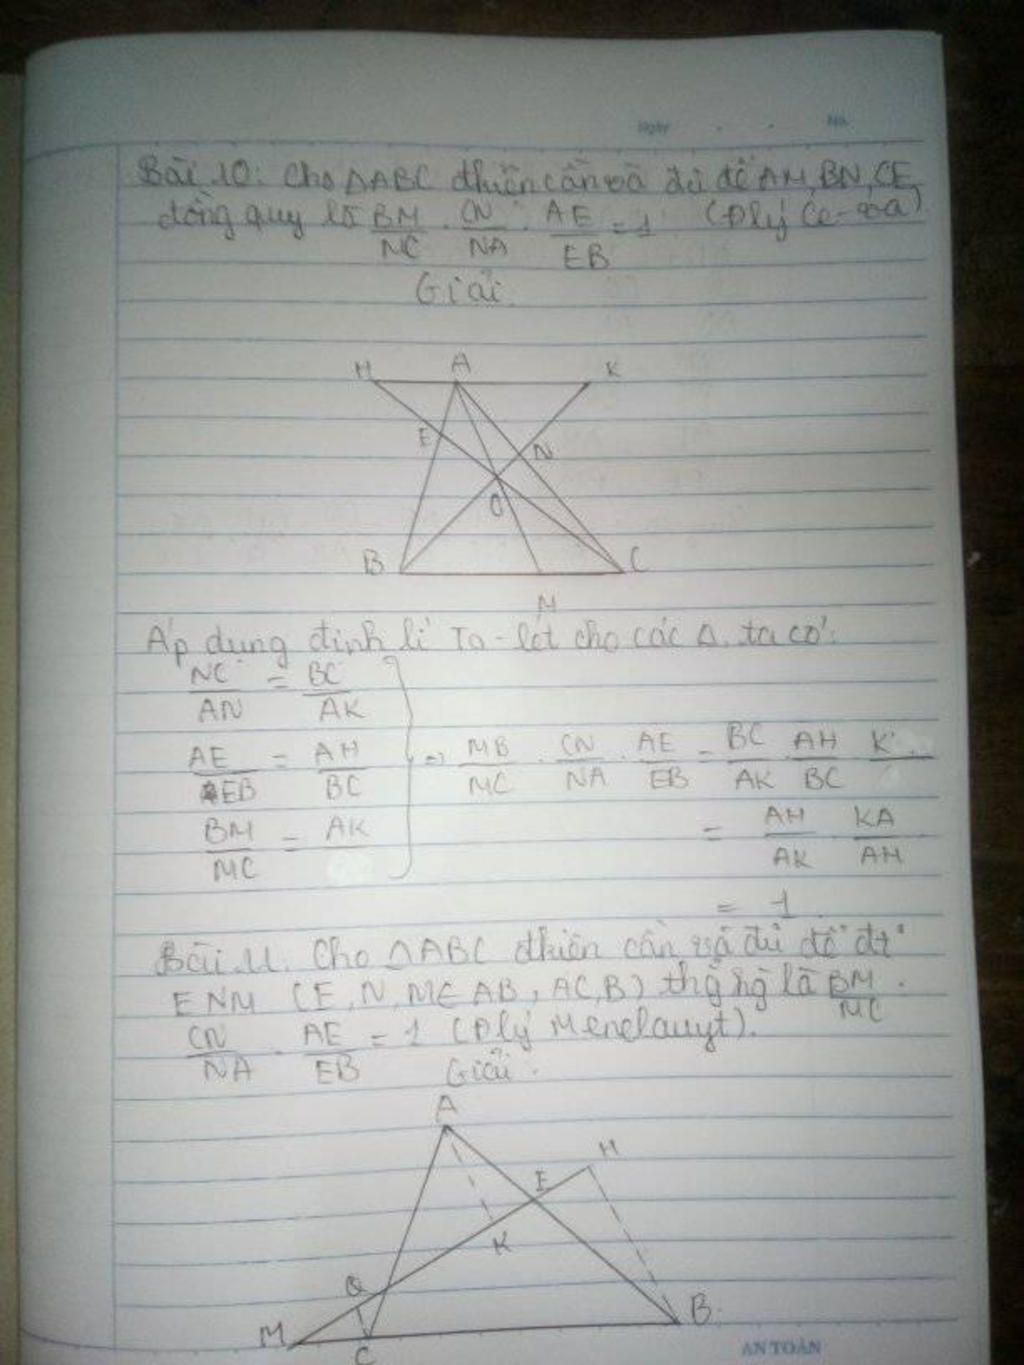 Ngày . . No.
Bài 10: Cho ΔABC đkiện cần và đủ để AM, BN, CE
đồng quy là BM/NC . CN/NA . AE/EB = 1 (Đlý Ce-va)
Giải.
H A K
E N
O
B C
M
Áp dụng định lí Ta-lét cho các Δ. ta có:
NC/AN = BC/AK
AE/EB = AH/BC
BM/MC = AK
=> MB/MC . CN/NA . AE/EB = BC/AK . AH/BC . K
= AH/AK . KA/AH
= 1
Bài 11. Cho ΔABC đkiện cần và đủ để đt'
ENM (E, N, M ∈ AB, AC, B) thg hg là BM/MC .
CN/NA . AE/EB = 1 (Đlý Menelauyt).
Giải.
A
H
E
K
Q
M C B
AN TOÀN